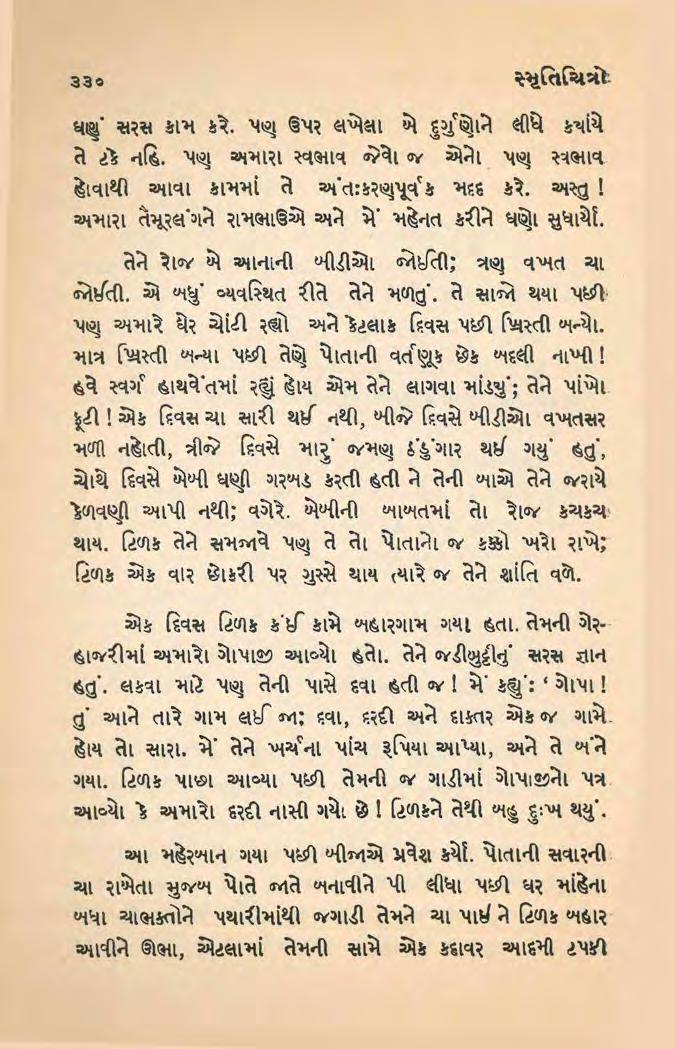 ૩૩૦ સ્મૃતિચિત્રો
ઘણું સરસ કામ કરે. પણ ઉપર લખેલા બે દુર્ગુણોને લીધે ક્યાંયે
તે ટકે નહિ. પણ અમારા સ્વભાવ જેવો જ એનો પણ સ્વભાવ
હોવાથી આવા કામમાં તે અંતઃકરણપૂર્વક મદદ કરે. અસ્તુ !
અમારા તૈમૂરલંગને રામભાઉએ અને મેં મહેનત કરીને ઘણો સુધાર્યો.
તેને રોજ બે આનાની બીડીઓ જોઈતી; ત્રણ વખત ચા
જોઈતી. એ બધું વ્યવસ્થિત રીતે તેને મળતું. તે સાજો થયા પછી
પણ અમારે ઘેર ચોંટી રહ્યો અને કેટલાક દિવસ પછી ખ્રિસ્તી બન્યો.
માત્ર ખ્રિસ્તી બન્યા પછી તેણે પોતાની વર્તણૂક છેક બદલી નાખી !
હવે સ્વર્ગ હાથવેંતમાં રહ્યું હોય એમ તેને લાગવા માંડ્યું; તેને પાંખો
ફૂટી ! એક દિવસ ચા સારી થઈ નથી, બીજે દિવસે બીડીઓ વખતસર
મળી નહોતી, ત્રીજે દિવસે મારું જમણ ઠંડુંગાર થઈ ગયું હતું,
ચોથે દિવસે બેબી ઘણી ગરબડ કરતી હતી ને તેની બાએ તેને જરાયે
કેળવણી આપી નથી; વગેરે. બેબીની બાબતમાં તો રોજ કચકચ
થાય. ટિળક તેને સમજાવે પણ તે તો પોતાનો જ કક્કો ખરો રાખે;
ટિળક એક વાર છોકરી પર ગુસ્સે થાય ત્યારે જ તેને શાંતિ વળે.
એક દિવસ ટિળક કંઈ કામે બહારગામ ગયા હતા. તેમની ગેર-
હાજરીમાં અમારો ગોપાજી આવ્યો હતો. તેને જડીબુટ્ટીનું સરસ જ્ઞાન
હતું. લકવા માટે પણ તેની પાસે દવા હતી જ ! મેં કહ્યું: ‘ ગોપા !
તું આને તારે ગામ લઈ જા; દવા, દરદી અને દાક્તર એક જ ગામે
હોય તો સારા. મેં તેને ખર્ચના પાંચ રૂપિયા આપ્યા, અને તે બંને
ગયા. ટિળક પાછા આવ્યા પછી તેમની જ ગાડીમાં ગોપાજીનો પત્ર
આવ્યો કે અમારો દરદી નાસી ગયો છે ! ટિળકને તેથી બહુ દુઃખ થયું.
આ મહેરબાન ગયા પછી બીજાએ પ્રવેશ કર્યો. પોતાની સવારની
ચા રાબેતા મુજબ પોતે જાતે બનાવીને પી લીધા પછી ઘર માંહેના
બધા ચાભક્તોને પથારીમાંથી જગાડી તેમને ચા પાઈ ને ટિળક બહાર
આવીને ઊભા, એટલામાં તેમની સામે એક કદ્દાવર આદમી ટપકી